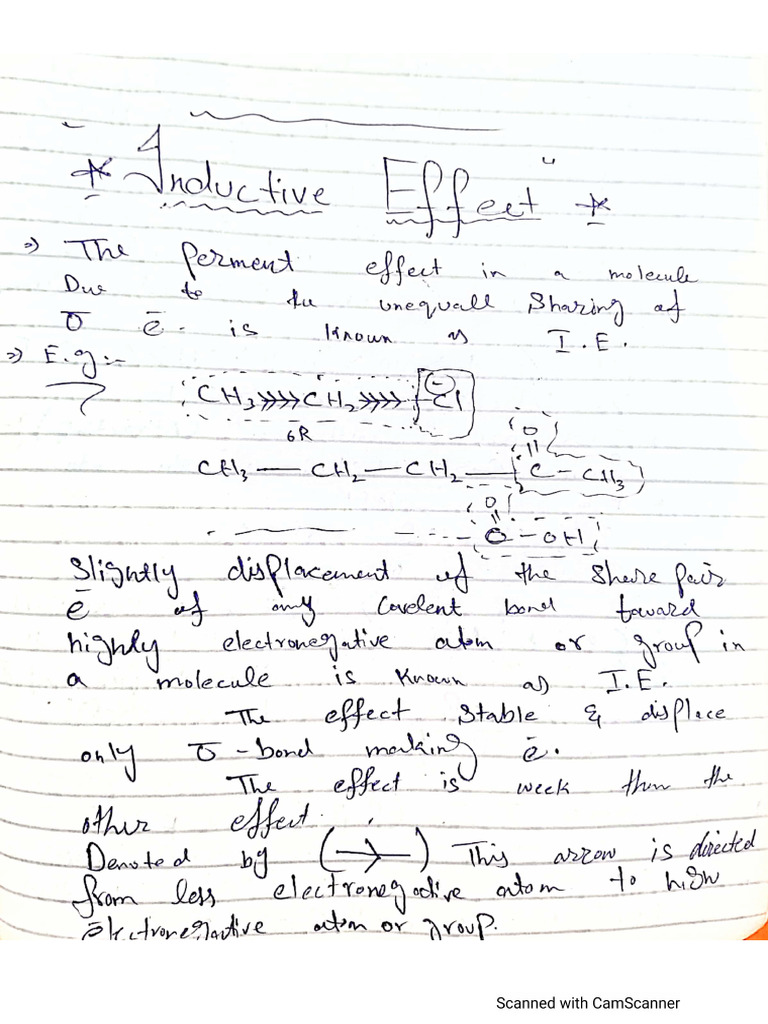 * Inductive Effect *
⇒ The perment effect in a molecule
Due to the unequall sharing of
σ ē. is known as I.E.
⇒ E.g:-
CH₃⋙CH₂⋙Cl
6R
O
CH₃ — CH₂ — CH₂ — C – CH₃
O
C – OH
Slightly displacement of the share pair
ē of any covelent bond toward
highly electronegative atom or group in
a molecule is known as I.E.
The effect stable & displace
only σ-bond marking ē.
The effect is week than the
other effect.
Denoted by (→) This arrow is directed
from less electronegactive atom to high
electronegactive atom or group.
Scanned with CamScanner